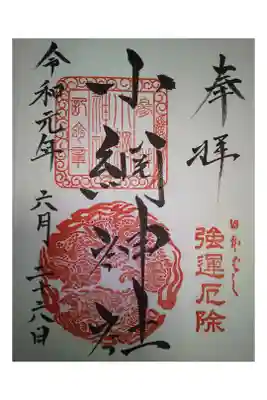 奉拝
強運厄除
小網神社
令和元年 六月 二十六日